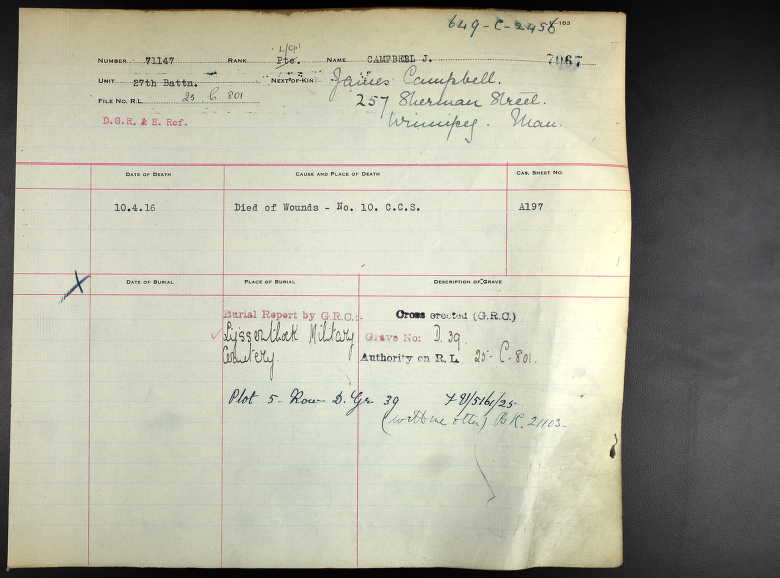 649-C-2456 -103
L/Cpl
NUMBER 71147 RANK Pte. NAME CAMPBELL J. 7067
UNIT 27th Battn. NEXT OF KIN James Campbell.
257 Sherman Street.
FILE NO. R.L. 25 C 801
Winnipeg. Man.
D.G.R. & E. Ref.
DATE OF DEATH CAUSE AND PLACE OF DEATH CAS. SHEET NO.
10.4.16 Died of Wounds - No. 10. C.C.S. A197
X
DATE OF BURIAL PLACE OF BURIAL DESCRIPTION OF GRAVE
Burial Report by G.R.C:- Cross erected (G.R.C.)
Lyssenthoek Military Grave No: D. 39.
Cemetery. Authority on R.L. 25-C-801.
Plot 5- Row D. Gr 39
B.R. 21103-